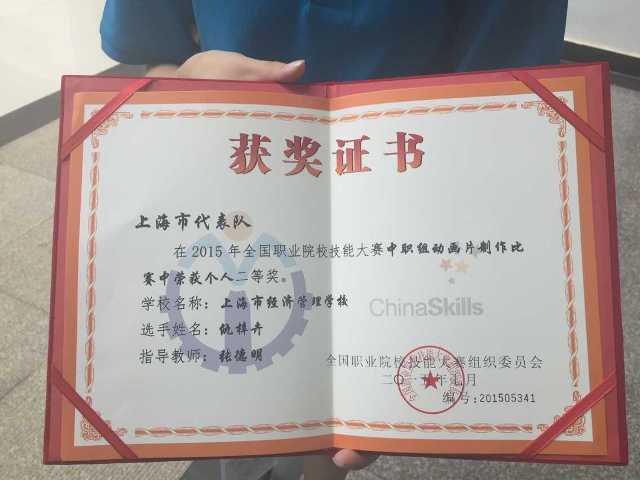 获奖证书
上海市代表队
在2015年全国职业院校技能大赛中职组动画片制作比
赛中荣获个人二等奖。
学校名称:上海市经济管理学校
ChinaSkills
选手姓名:仇梓卉
指导教师:张德明
全国职业院校技能大赛组织委员会
二〇一五年七月
编号:201505341